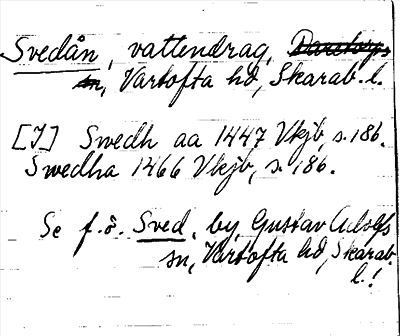 Svedån, vattendrag, Daretorps
sn, Vartofta hd, Skarab. l.
[I] Swedh aa 1447 Vkjb, s. 186.
Swedha 1466 Vkjb, s. 186.
Se f. ö. Sved, by, Gustav Adolfs
sn, Vartofta hd, Skarab.
l.!